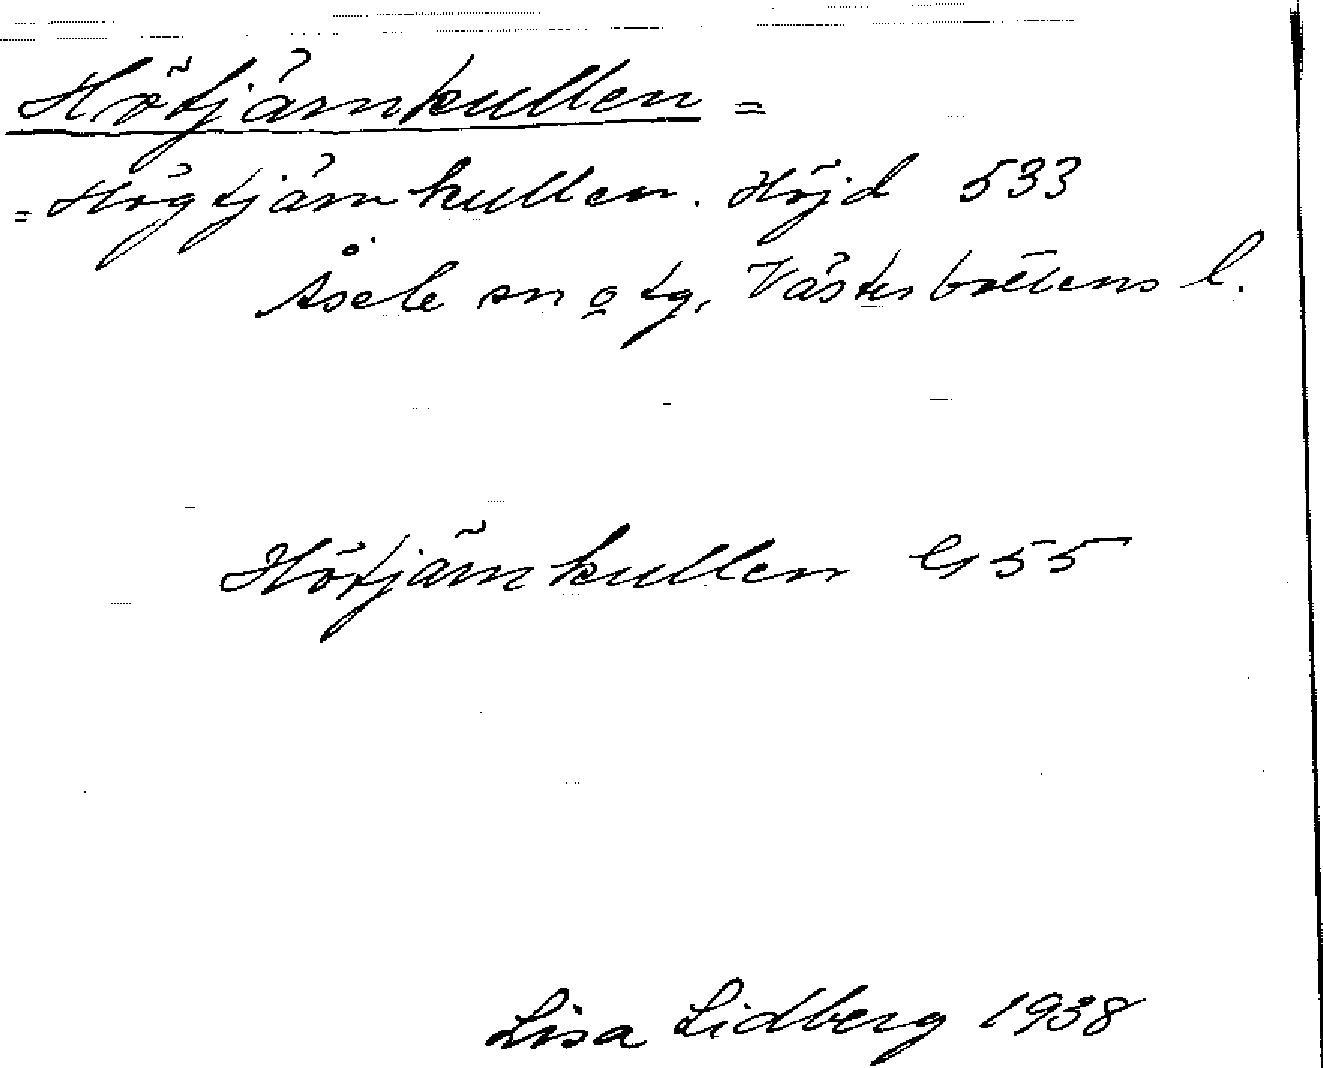 Hötjärnkullen =
= Högtjärnkullen. Höjd 533
Åsele sn o tg, Västerbottens l.
Hötjärnkullen G 55
Lisa Lidberg 1938